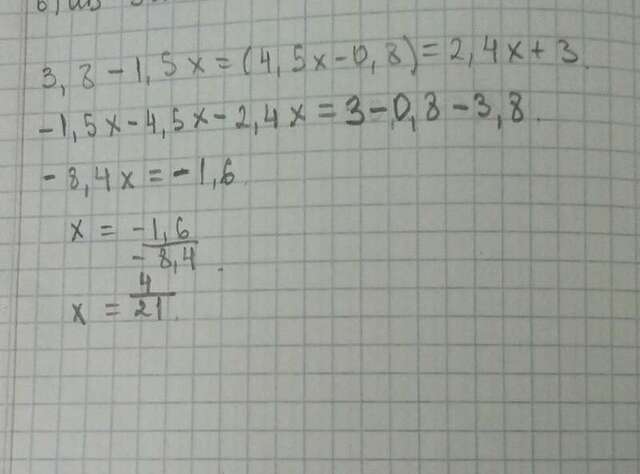 3,8-1,5x=(4,5x-0,8)=2,4x+3.
-1,5x-4,5x-2,4x=3-0,8-3,8.
-8,4x=-1,6
x = -1,6/-8,4.
x = 4/21.